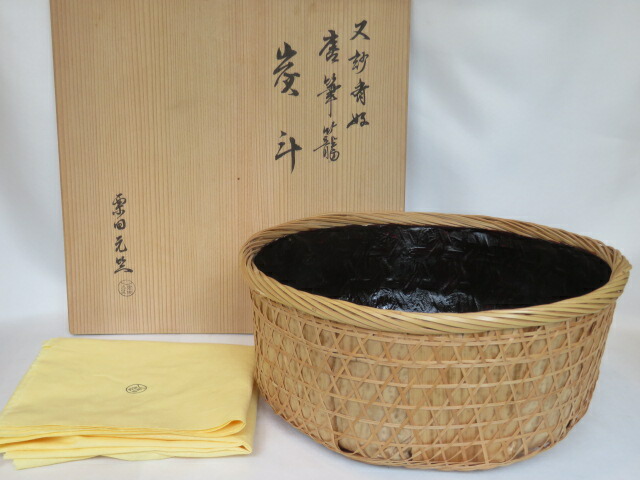 又玅斎好
唐筆籠
炭斗
粟田元竺